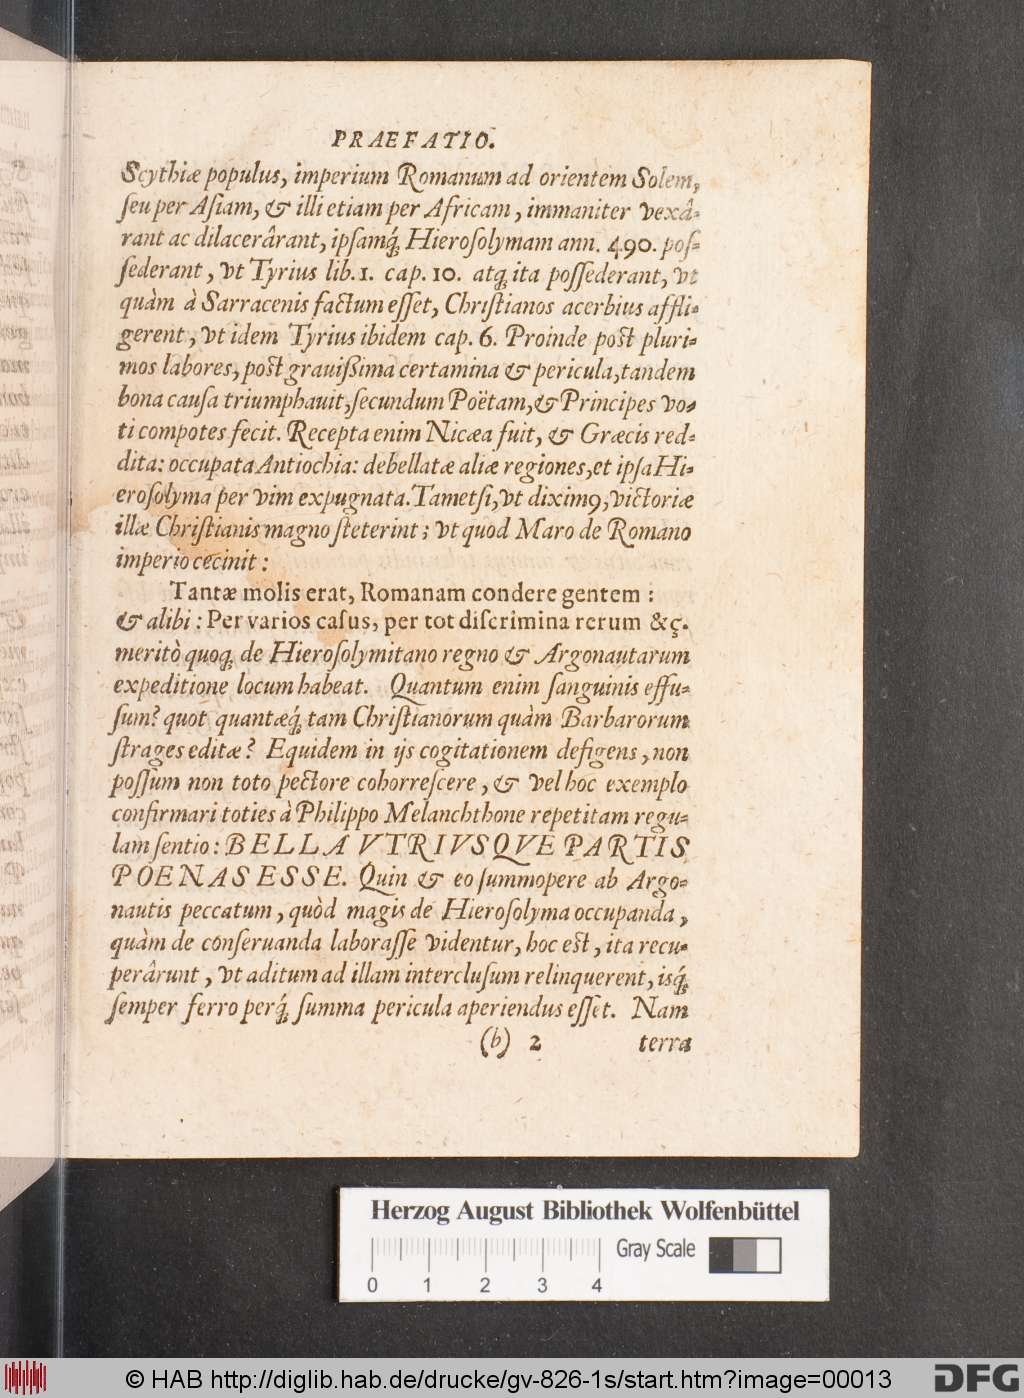 PRAEFATIO.
Scythiæ populus, imperium Romanum ad orientem Solem,
ſeu per Aſiam, & illi etiam per Africam, immaniter vexâ-
rant ac dilacerârant, ipſamq́; Hieroſolymam ann. 490. poſ-
ſederant, vt Tyrius lib. 1. cap. 10. atq; ita poſſederant, vt
quàm à Sarracenis factum eſſet, Chriſtianos acerbius affli-
gerent, vt idem Tyrius ibidem cap. 6. Proinde poſt pluri-
mos labores, poſt grauißima certamina & pericula, tandem
bona cauſa triumphauit, ſecundum Poëtam, & Principes vo-
ti compotes fecit. Recepta enim Nicæa fuit, & Græcis red-
dita: occupata Antiochia: debellatæ aliæ regiones, et ipſa Hi-
eroſolyma per vim expugnata. Tametſi, vt diximꝰ, victoriæ
illæ Chriſtianis magno ſteterint; vt quod Maro de Romano
imperio cecinit:
Tantæ molis erat, Romanam condere gentem:
& alibi: Per varios caſus, per tot diſcrimina rerum &ç.
meritò quoq; de Hieroſolymitano regno & Argonautarum
expeditione locum habeat. Quantum enim ſanguinis effu-
ſum? quot quantæq́; tam Chriſtianorum quàm Barbarorum
ſtrages editæ? Equidem in ijs cogitationem defigens, non
poſſum non toto pectore cohorreſcere, & vel hoc exemplo
confirmari toties à Philippo Melanchthone repetitam regu-
lam ſentio: BELLA VTRIVSQVE PARTIS
POENAS ESSE. Quin & eo ſummopere ab Argo-
nautis peccatum, quòd magis de Hieroſolyma occupanda,
quàm de conſeruanda laboraſſe videntur, hoc eſt, ita recu-
perârunt, vt aditum ad illam interclusum relinquerent, isq́;
ſemper ferro perq́; ſumma pericula aperiendus eſſet. Nam
(b) 2 terra
Herzog August Bibliothek Wolfenbüttel
Gray Scale
0 1 2 3 4
© HAB http://diglib.hab.de/drucke/gv-826-1s/start.htm?image=00013
DFG